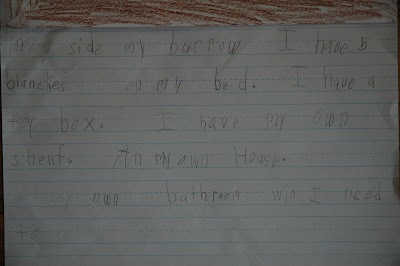 in side my barrow I have 5
blanches on my bed. I have a
toy box. I have my own
shelf. An my own House.
my own bathroom win I need
to